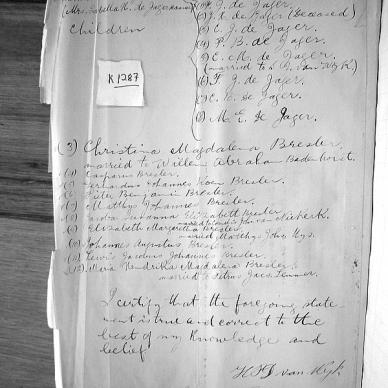 (Mrs. Isabella H. de Jager
Children
J. de Jager.
de Jager (Deceased)
C. J. de Jager.
P. B. de Jager.
C. M. de Jager.
(married to van Wyk)
F. J. de Jager.
C. E. de Jager.
M. E. de Jager.
K 1287
(3) Christina Magdalena Bresler.
married to Willem Abraham Badenhorst.
Casparus Bresler.
Johannes Koen Bresler.
Pieter Benjamin Bresler.
Matthys Johannes Bresler.
Susanna Elizabeth Bresler
married Niekerk.
Elizabeth Margaretha Bresler
married Matthys Johs. Uys.
Johannes Augustus Bresler.
Lewis Jacobus Johannes Bresler.
Maria Hendrika Magdalena Bresler.
married to Petrus Jacs.
I certify that the foregoing state
ment is true and correct to the
best of my knowledge and
belief
van Wyk